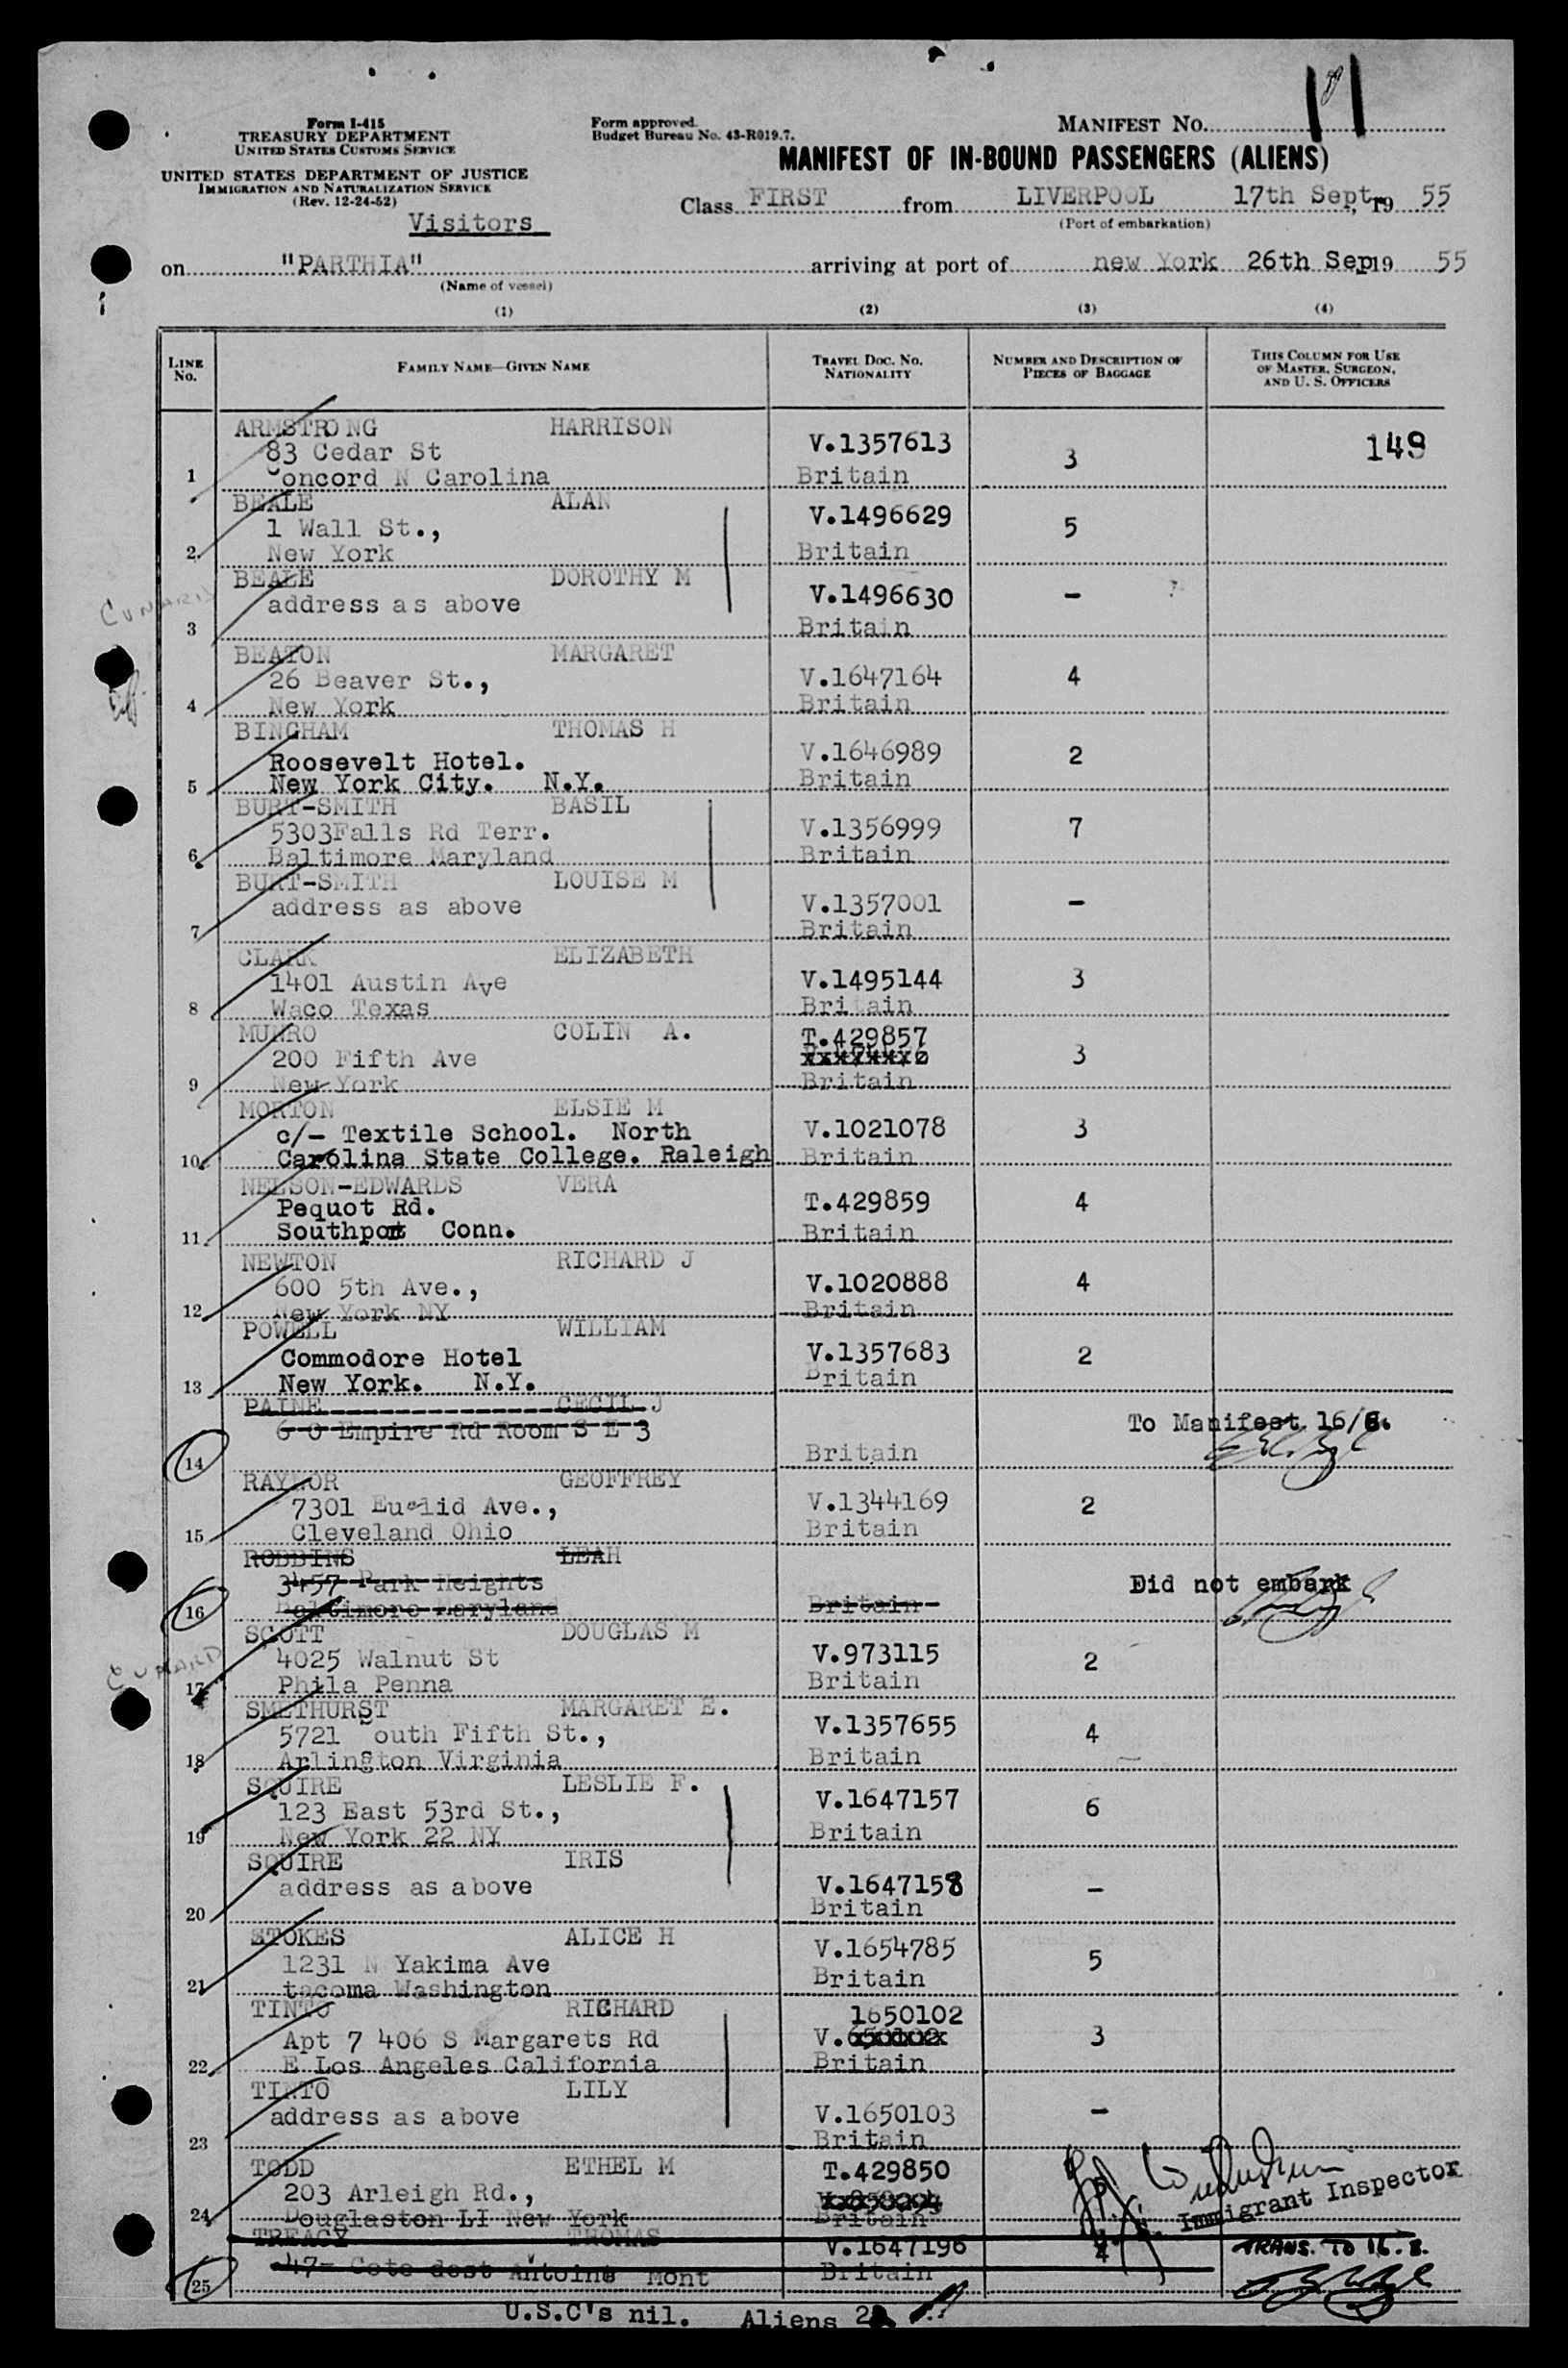 Form I-415
TREASURY DEPARTMENT
UNITED STATES CUSTOMS SERVICE
UNITED STATES DEPARTMENT OF JUSTICE
IMMIGRATION AND NATURALIZATION SERVICE
(Rev. 12-24-52)
Visitors
Form approved.
Budget Bureau No. 43-R019.7.
MANIFEST NO. 11
MANIFEST OF IN-BOUND PASSENGERS (ALIENS)
Class FIRST from LIVERPOOL 17th Sept, 19 55
(Port of embarkation)
on "PARTHIA" arriving at port of new York 26th Sep 19 55
(Name of vessel)
(1) (2) (3) (4)
LINE No. FAMILY NAME—GIVEN NAME TRAVEL DOC. NO. NATIONALITY NUMBER AND DESCRIPTION OF PIECES OF BAGGAGE THIS COLUMN FOR USE OF MASTER, SURGEON, AND U. S. OFFICERS
ARMSTRONG HARRISON
83 Cedar St V.1357613 3 149
1 Concord N Carolina Britain
BEALE ALAN
1 Wall St., V.1496629 5
2 New York Britain
BEALE DOROTHY M
address as above V.1496630 -
CUNARD
3 Britain
BEATON MARGARET
26 Beaver St., V.1647164 4
4 New York Britain
BINGHAM THOMAS H
Roosevelt Hotel. V.1646989 2
5 New York City. N.Y. Britain
BURT-SMITH BASIL
5303Falls Rd Terr. V.1356999 7
6 Baltimore Maryland Britain
BURT-SMITH LOUISE M
address as above V.1357001 -
7 Britain
CLARK ELIZABETH
1401 Austin Ave V.1495144 3
8 Waco Texas Britain
MUNRO COLIN A. T.429857
200 Fifth Ave 3
9 New York Britain
MORTON ELSIE M
c/- Textile School. North V.1021078 3
10 Carolina State College. Raleigh Britain
NELSON-EDWARDS VERA
Pequot Rd. T.429859 4
11 Southport Conn. Britain
NEWTON RICHARD J
600 5th Ave., V.1020888 4
12 New York NY Britain
POWELL WILLIAM
Commodore Hotel V.1357683 2
13 New York. N.Y. Britain
PAINE CECIL J
6 0 Empire Rd Room S E 3 To Manifest 16/8.
14 Britain
RAYNOR GEOFFREY
7301 Euclid Ave., V.1344169 2
15 Cleveland Ohio Britain
ROBBINS LEAH
3457 Park Heights Did not embark
16 Baltimore Maryland Britain
SCOTT DOUGLAS M
CUNARD
4025 Walnut St V.973115 2
17 Phila Penna Britain
SMETHURST MARGARET E.
5721 South Fifth St., V.1357655 4
18 Arlington Virginia Britain
SQUIRE LESLIE F.
123 East 53rd St., V.1647157 6
19 New York 22 NY Britain
SQUIRE IRIS
address as above V.1647158 -
20 Britain
STOKES ALICE H
1231 N Yakima Ave V.1654785 5
21 tacoma Washington Britain
TINTO RICHARD 1650102
Apt 7 406 S Margarets Rd V. 3
22 E Los Angeles California Britain
TINTO LILY
address as above V.1650103 -
23 Britain
TODD ETHEL M T.429850
203 Arleigh Rd.,
24 Douglaston LI New York Britain
Immigrant Inspector
TREACY THOMAS V.1647196 4 TRANS. TO 16-8.
25 47- Cote dest Antoine Mont Britain
U.S.C's nil. Aliens